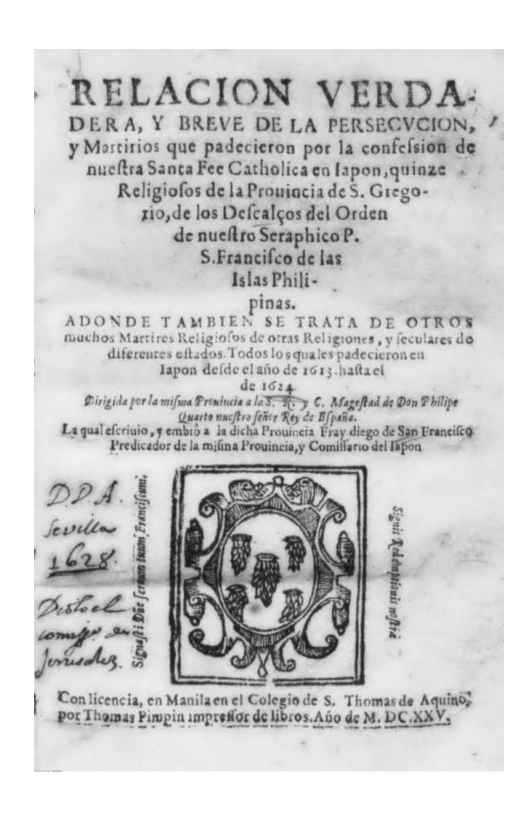 RELACION VERDA-
DERA, Y BREVE DE LA PERSECVCION,
y Martirios que padecieron por la confeſsion de
nueſtra Santa Fee Catholica en Iapon, quinze
Religioſos de la Prouincia de S. Grego-
rio, de los Deſcalços del Orden
de nueſtro Seraphico P.
S. Franciſco de las
Islas Phili-
pinas.
ADONDE TAMBIEN SE TRATA DE OTROS
muchos Martires Religioſos de otras Religiones, y ſeculares de
diferentes eſtados. Todos los quales padecieron en
Iapon deſde el año de 1613. haſta el
de 1624
Dirigida por la miſma Prouincia a la S. R. y C. Mageſtad de Don Philipe
Quarto nueſtro ſeñor Rey de Eſpaña.
La qual eſcriuio, y embiò a la dicha Prouincia Fray diego de San Franciſco
Predicador de la miſma Prouincia, y Comiſſario del Iapon
D.D.A.
Sevilla
1628.
en
Signaſti Dñe ſeruum tuum Franciſcum.
Signis Redemptionis noſtrę
Con licencia, en Manila en el Colegio de S. Thomas de Aquino,
por Thomas Pimpin impreſſor de libros. Año de M. DC.XXV.